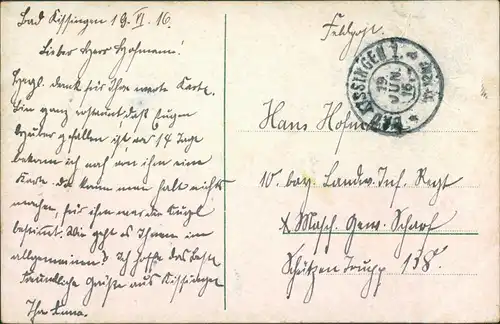 Bad Kissingen 19. VI. 16.
Lieber Herr Hofmann!
Herzl. Dank für Ihre werte Karte.
Bin ganz erstaunt, daß Eugen
gefallen ist, vor 14 Tage
bekam ich noch von ihm eine
Karte. Da kann man halt nichts
machen, für ihn war die Kugel
bestimmt. Wie geht es Ihnen im
allgemeinen? Ich hoffe das Beste
Freundliche Grüße aus Kissingen
Ihre Anna.
Feldpost.
BAD KISSINGEN 1.
19
JUN.
16
Hans Hofmann
10. bay. Landw. Inf. Regt
Masch. Gew. Scharf
Schützen Trupp 138.